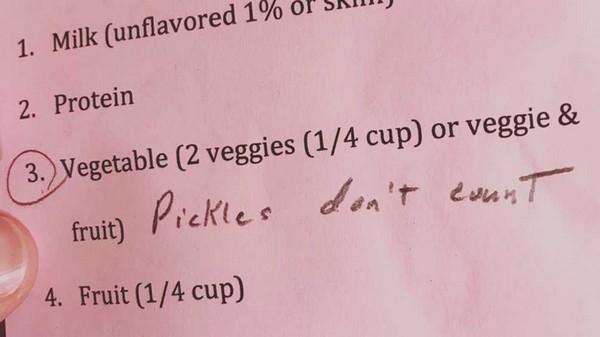 1. Milk (unflavored 1% or skim)
2. Protein
3. Vegetable (2 veggies (1/4 cup) or veggie &
fruit) Pickles don't count
4. Fruit (1/4 cup)